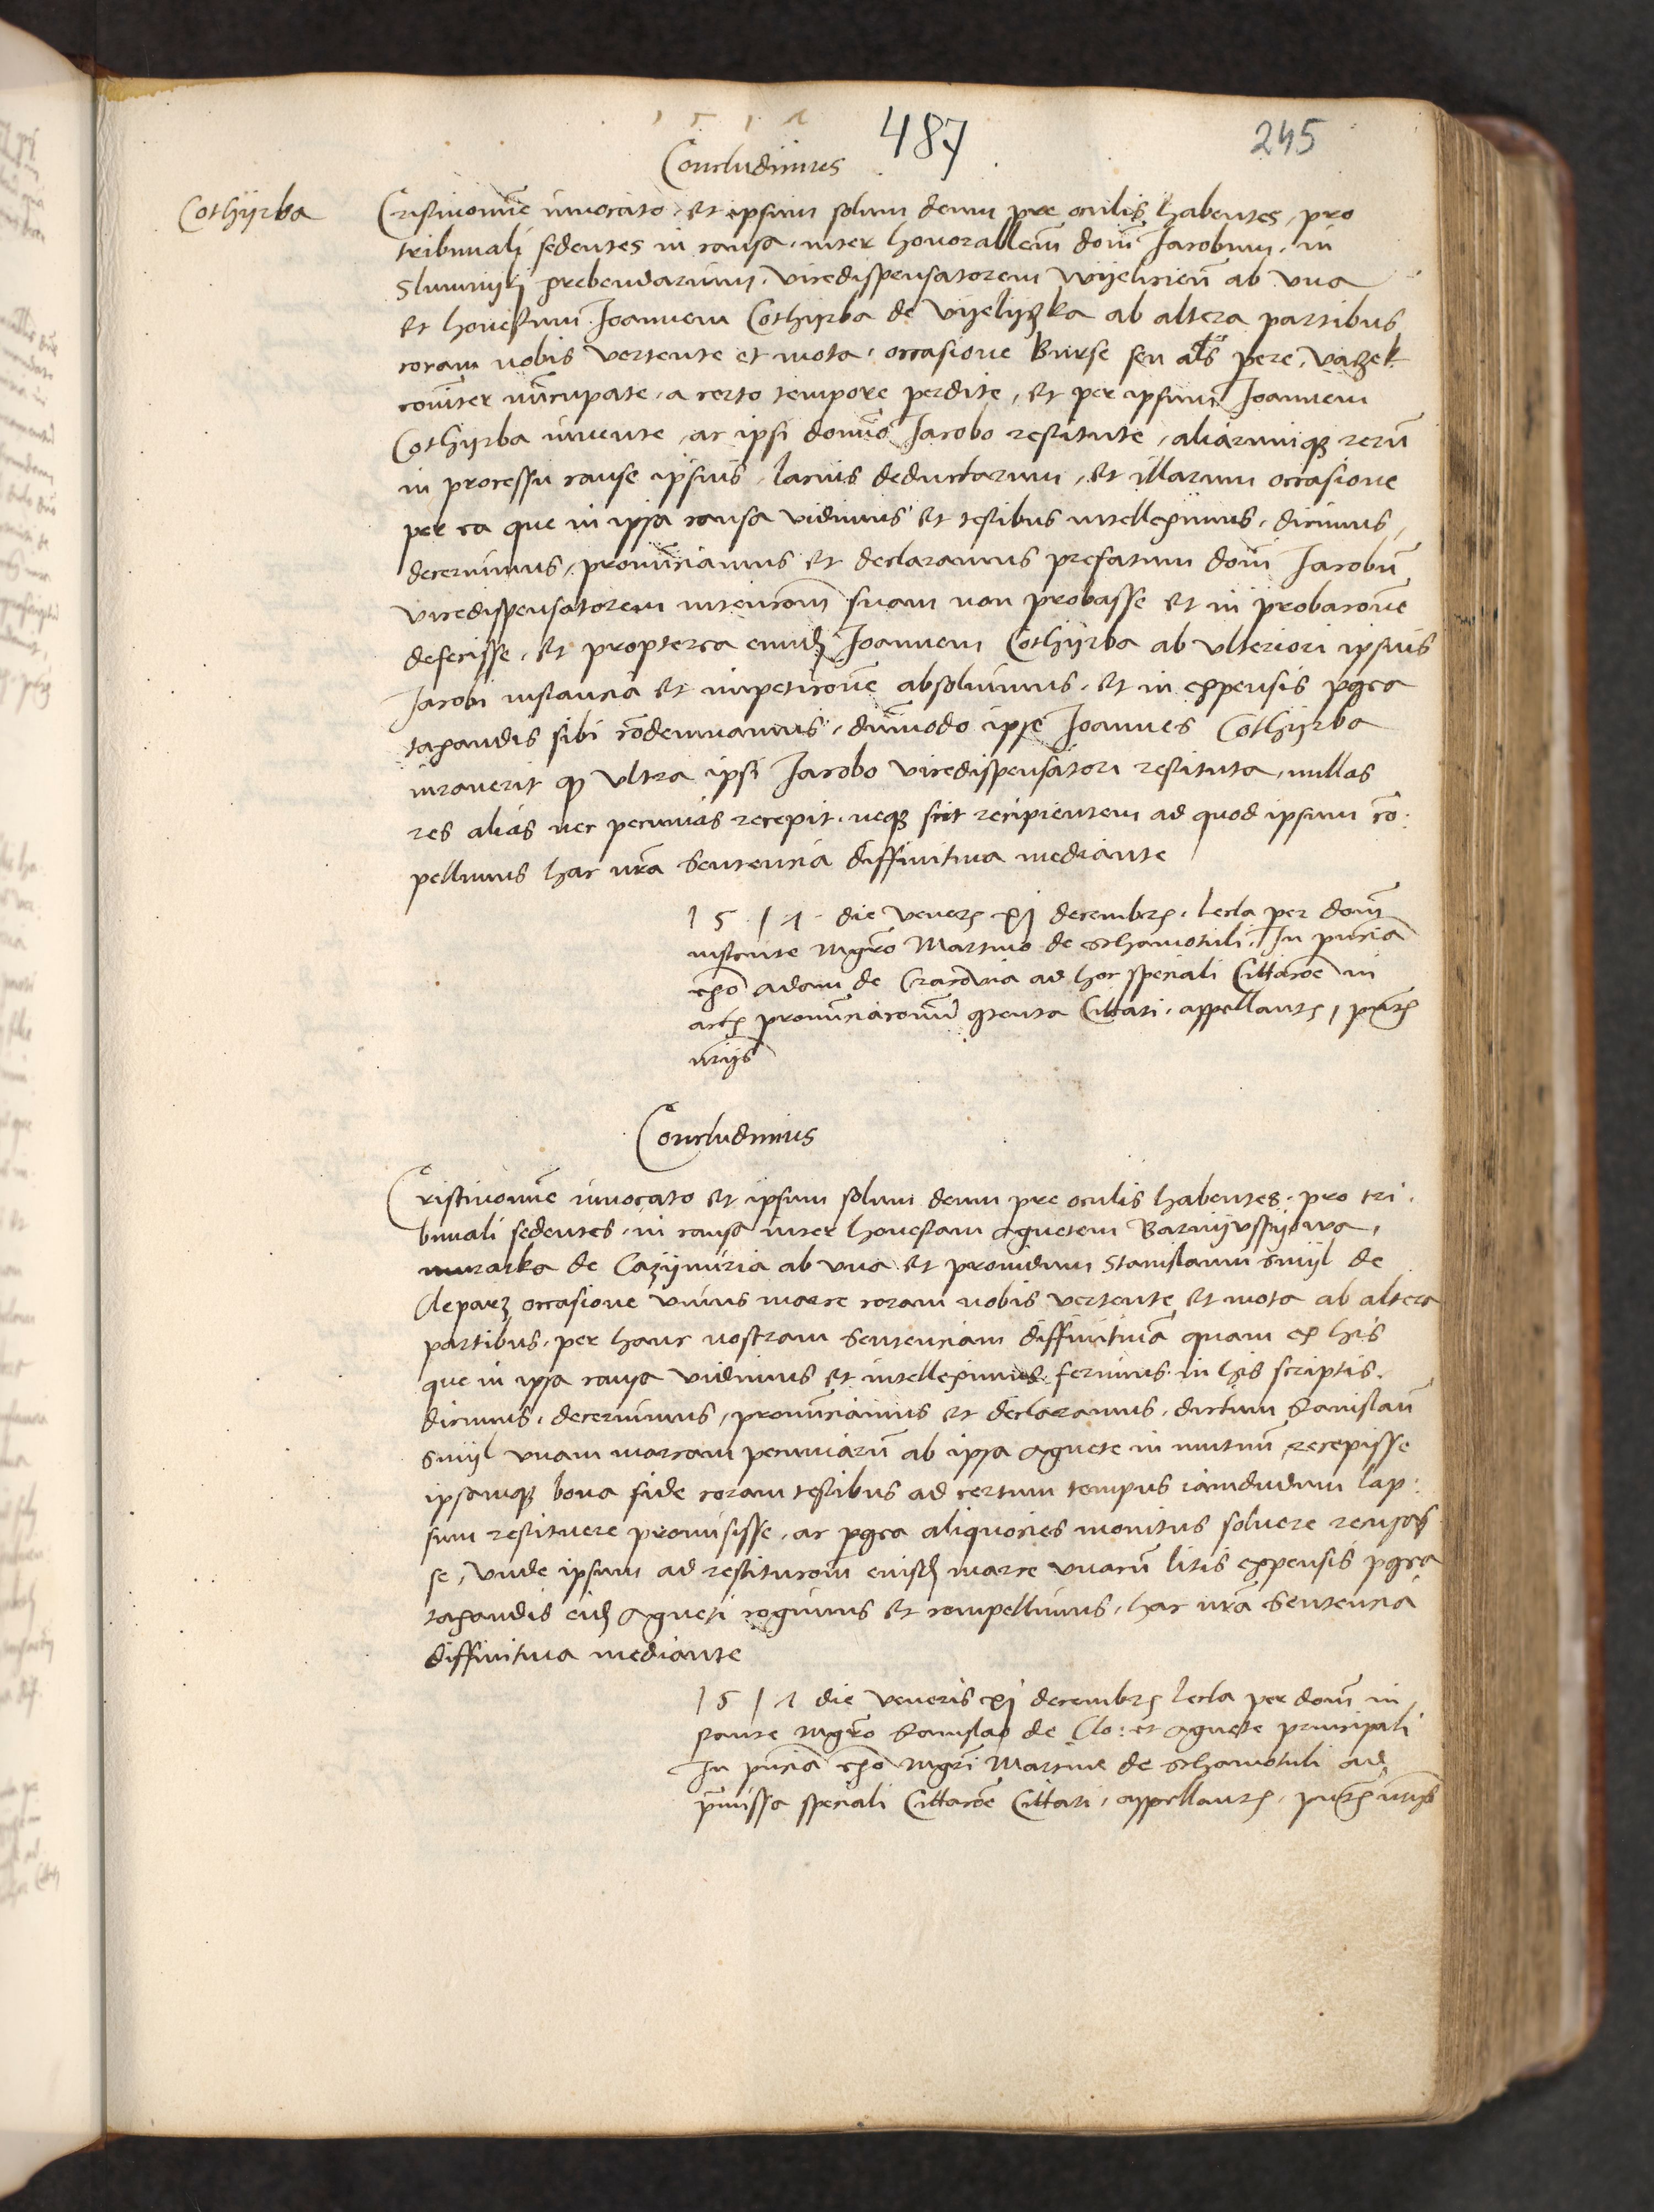 1 5 1 1
487
245
Concludimus
Cothÿrba
Cristinomīe invocato et ipsum solum deum pre oculis habentes, pro
tribunali sedentes in causa inter honorabilem̄ dom̄ Jacobum in
prebendarium, vicedispensatorem Wÿelicien̄ ab vna
et honestum Joannem Cothÿrba de Vÿelÿczka ab altera partibus
coram nobis vertente et mota, occasione Burse seu al̄s pere, vaczek
com̄iter nūcupate, a certo tempore perdite, et per ipsum Joannem
Cothÿrba invente, ac ipsi domīo Jacobo restitute, aliarumqȝ rerū
in processu cause ipsius lacius deductarum, et illarum occasione
per ea que in ipsa causa vidimus et testibus intelleximus, dicimus,
decernimus, pronūciamus et declaramus prefatum dom̄ Jacobū
vicedispensatorem intencom̄ suam non probasse et in probacōne
defecisse, et propterea eundȝ Joannem Cothÿrba ab vlteriori ipsius
Jacobi instancia et impeticōne absoluimus, et in expensis pqea
taxandis sibi cōdemnamus, dūmodo ipse Joannes Cothÿrba
iuraverit qȝ vltra ipsi Jacobo vicedispensatori restituta, nullas
res alias nec pecunias recepit, neqȝ scit recipientem ad quod ipsum cō:
pellimus hac nrā Sentencia diffinitiva mediante
1 5 1 1 die venerȝ xj decembrȝ, lecta per dom̄
instante mgrō Martino de Schamotuli, In pn̄cia
adam de Cracovia ad hoc speciali Cittacōe in
actȝ pronūciacom̄ Cittati, appellantȝ,
Concludimus
Cristinomīe invocato et ipsum solum deum pre oculis habentes, pro tri,
bunali sedentes, in causa inter honestam agnetem
murarka de Cazÿmiria ab vna et providum Stanislaum Smÿl de
Cleparz occasione vnius marce coram nobis vertente et mota ab altera
partibus, per hanc nostram Sentenciam diffinitivā quam ex his
que in ipsa causa vidimus et intelleximus ferimus in his scriptis,
dicimus, decernimus, pronūciamus et declaramus, dictum Stanislaū
Smÿl vnam marcam pecuniarū ab ipsa Agnete in mutuū recepisse
ipsamqȝ bona fide coram testibus ad certum tempus iamdudum lap:
sum restituere promisisse, ac pqea aliquocies monitus soluere recusas
se, vnde ipsum ad restitucom̄ eiusdȝ marce vnacū litis expensis pqea
taxandis eidȝ Agneti cogimus et compellimus, hac nrā Sentencia
diffinitiva mediante
1 5 1 1 die veneris xj decembrȝ lecta per dom̄ in,
stante mgrō Stanislao de Clo: et Agnete principali
In pn̄cia mgrī Martini de Schamotuli ad
p̄missa speciali Cittacōe Cittati, appellantȝ,